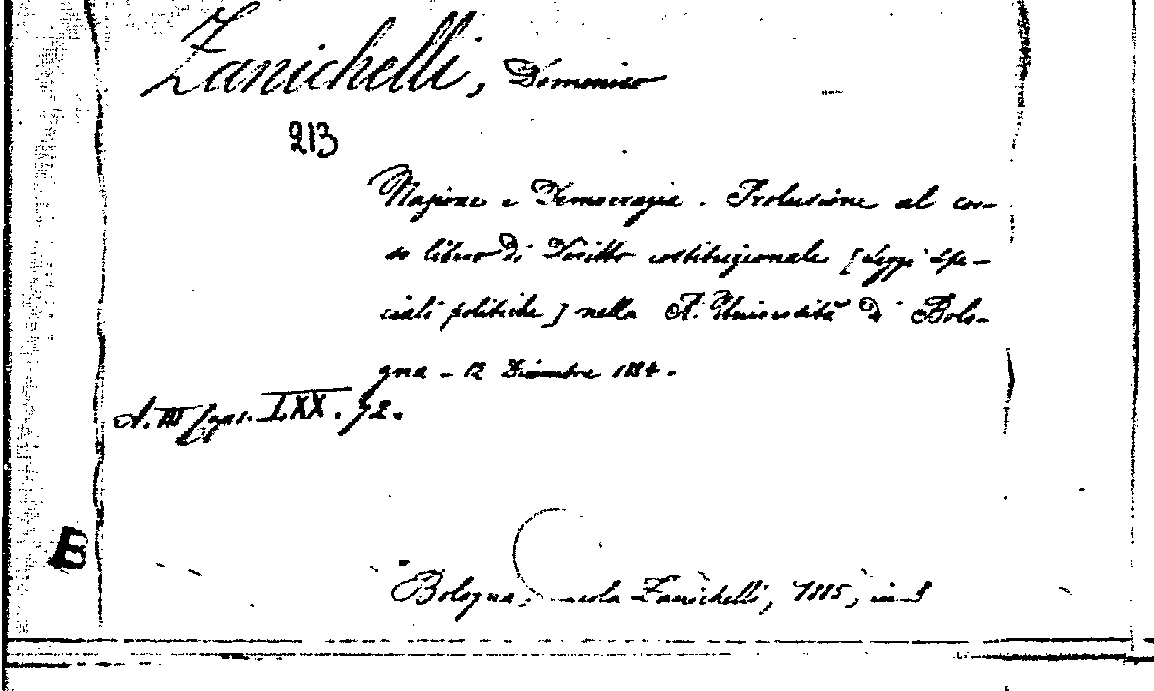 Zanichelli, Domenico
213
Nazione e Democrazia. Prolusione al cor-
so libero di Diritto costituzionale [Leggi spe-
ciali politiche] nella R. Università di Bolo-
gna - 12 Dicembre 1884.
A. III LXX. 52.
B
Bologna, Zanichelli, 1885, in 8